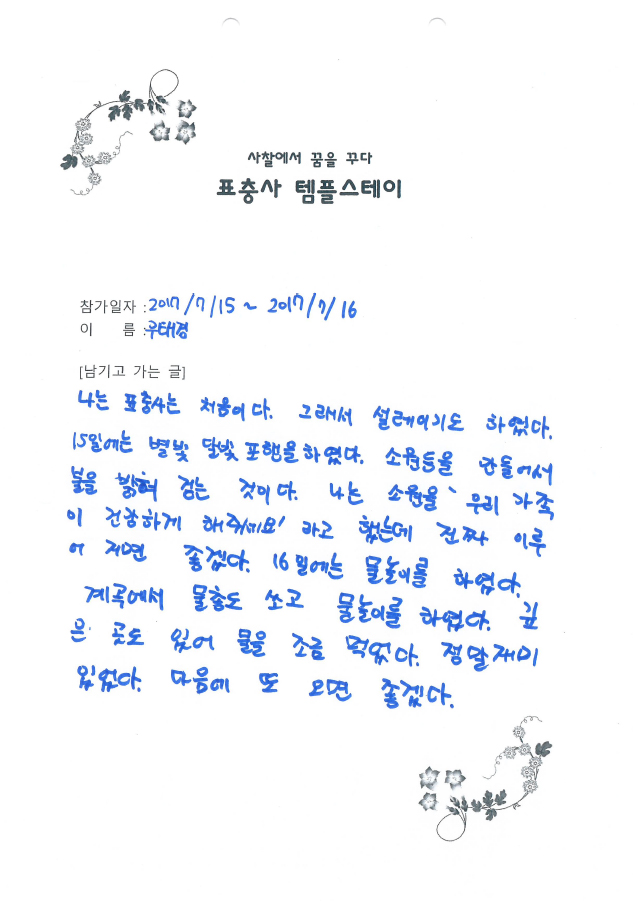 사찰에서 꿈을 꾸다
표충사 템플스테이
참가일자 : 2017/7/15 ~ 2017/7/16
이 름 : 우태경
[남기고 가는 글]
나는 표충사는 처음이다. 그래서 설레이기도 하였다.
15일에는 별빛 달빛 포행을 하였다. 소원등을 만들어서
불을 밝혀 걷는 것이다. 나는 소원을 '우리 가족
이 건강하게 해주세요' 라고 했는데 진짜 이루
어 지면 좋겠다. 16일에는 물놀이를 하였다.
계곡에서 물총도 쏘고 물놀이를 하였다. 깊
은 곳도 있어 물을 조금 먹었다. 정말 재미
있었다. 다음에 또 오면 좋겠다.